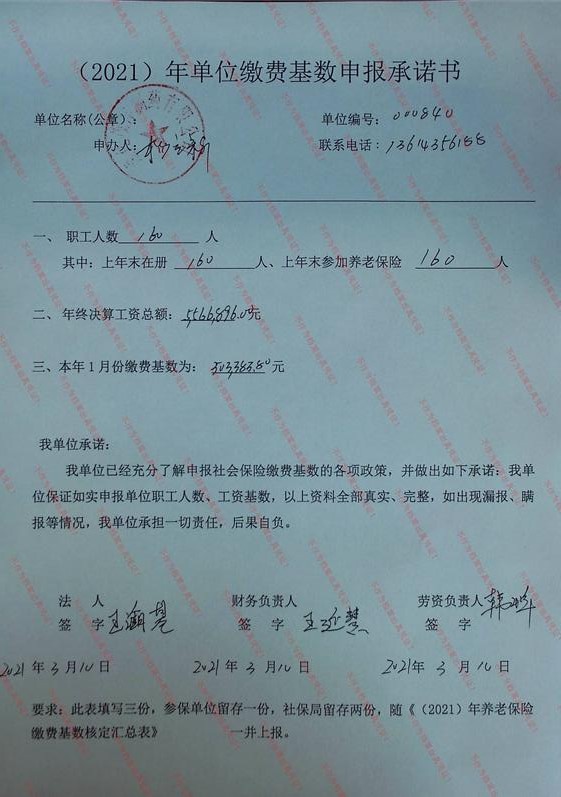 （2021）年单位缴费基数申报承诺书
单位名称(公章)： 单位编号：000840
申办人： 联系电话：13614356188
一、 职工人数 160 人
其中：上年末在册 160 人、上年末参加养老保险 160 人
二、 年终决算工资总额：5,566,896.00元
三、本年1月份缴费基数为： 503,383.80元
我单位承诺：
我单位已经充分了解申报社会保险缴费基数的各项政策，并做出如下承诺：我单
位保证如实申报单位职工人数、工资基数，以上资料全部真实、完整，如出现漏报、瞒
报等情况，我单位承担一切责任，后果自负。
法 人 财务负责人 劳资负责人
签 字 签 字 王延慧 签 字
2021年3月10日 2021年3月10日 2021年3月10日
要求：此表填写三份，参保单位留存一份，社保局留存两份，随《（2021）年养老保险
缴费基数核定汇总表》 一并上报。